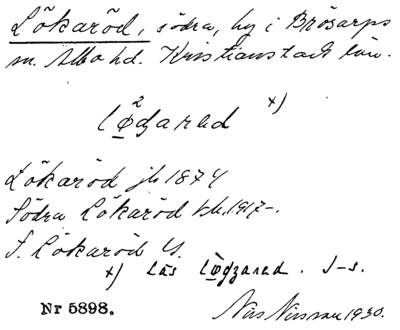 Lökaröd, södra, by i Brösarps
sn. Albo hd. Kristianstads län.
2 x)
løgarad
Lökaröd jb 1874
Södra Lökaröd kb. 1917-.
S. Lökaröd
x) Läs løgzarad. J-s.
Nr 5898. Nils Nilsson 1930.